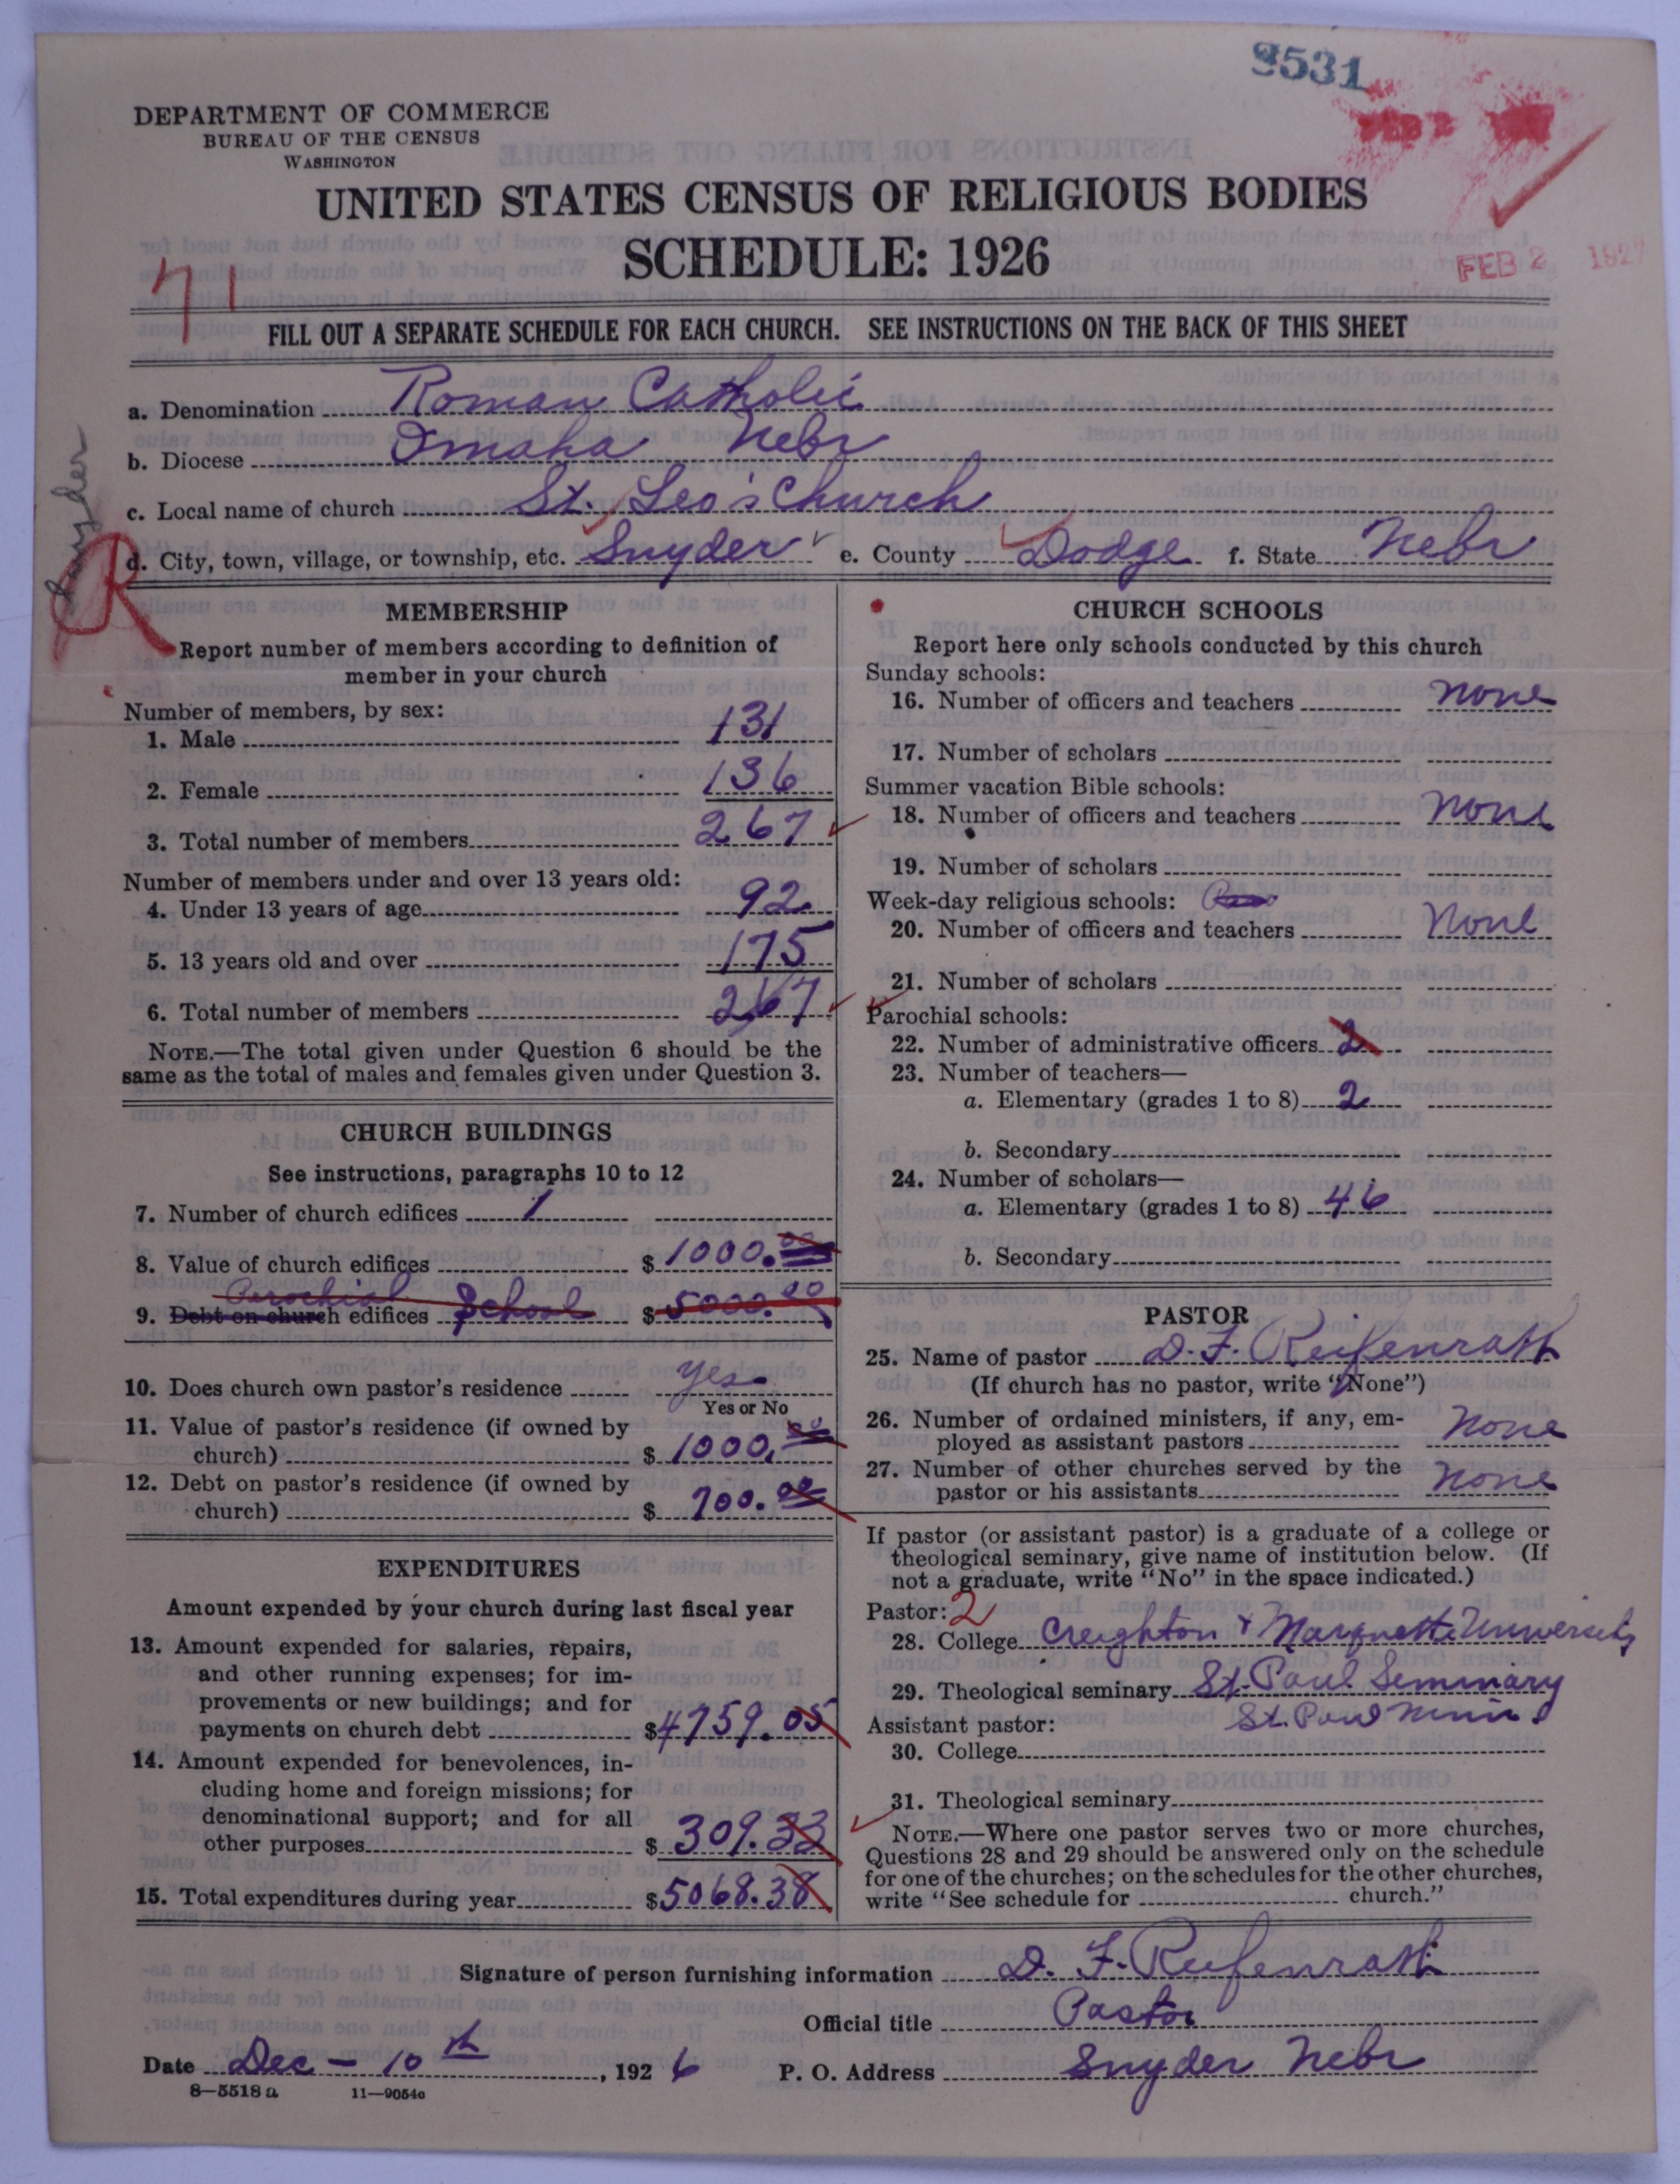 9531
DEPARTMENT OF COMMERCE
BUREAU OF THE CENSUS
WASHINGTON
UNITED STATES CENSUS OF RELIGIOUS BODIES
SCHEDULE: 1926
FEB 2 1927
71
FILL OUT A SEPARATE SCHEDULE FOR EACH CHURCH. SEE INSTRUCTIONS ON THE BACK OF THIS SHEET
a. Denomination Roman Catholic
b. Diocese Omaha Nebr
c. Local name of church St. Leo's Church
d. City, town, village, or township, etc. Snyder e. County Dodge f. State Nebr
Snyder
R
MEMBERSHIP
Report number of members according to definition of
member in your church
Number of members, by sex:
1. Male 131
2. Female 136
3. Total number of members 267
Number of members under and over 13 years old:
4. Under 13 years of age 92
5. 13 years old and over 175
6. Total number of members 267
NOTE.—The total given under Question 6 should be the
same as the total of males and females given under Question 3.
CHURCH BUILDINGS
See instructions, paragraphs 10 to 12
7. Number of church edifices 1
8. Value of church edifices $ 1000.00
Parochial
9. Debt on church edifices School $ 5000.00
10. Does church own pastor's residence yes
Yes or No
11. Value of pastor's residence (if owned by
church) $ 1000.00
12. Debt on pastor's residence (if owned by
church) $ 700.00
EXPENDITURES
Amount expended by your church during last fiscal year
13. Amount expended for salaries, repairs,
and other running expenses; for im-
provements or new buildings; and for
payments on church debt $ 4759.05
14. Amount expended for benevolences, in-
cluding home and foreign missions; for
denominational support; and for all
other purposes $ 309.33
15. Total expenditures during year $ 5068.38
CHURCH SCHOOLS
Report here only schools conducted by this church
Sunday schools:
16. Number of officers and teachers none
17. Number of scholars
Summer vacation Bible schools:
18. Number of officers and teachers none
19. Number of scholars
Week-day religious schools:
20. Number of officers and teachers None
21. Number of scholars
Parochial schools:
22. Number of administrative officers 2
23. Number of teachers—
a. Elementary (grades 1 to 8) 2
b. Secondary
24. Number of scholars—
a. Elementary (grades 1 to 8) 46
b. Secondary
PASTOR
25. Name of pastor D. F. Reifenrath
(If church has no pastor, write "None")
26. Number of ordained ministers, if any, em-
ployed as assistant pastors None
27. Number of other churches served by the
pastor or his assistants none
If pastor (or assistant pastor) is a graduate of a college or
theological seminary, give name of institution below. (If
not a graduate, write "No" in the space indicated.)
Pastor: 2
28. College Creighton & Marquette University
29. Theological seminary St. Paul Seminary
Assistant pastor: St. Paul Minn.
30. College
31. Theological seminary
NOTE.—Where one pastor serves two or more churches,
Questions 28 and 29 should be answered only on the schedule
for one of the churches; on the schedules for the other churches,
write "See schedule for church."
Signature of person furnishing information D. F. Reifenrath
Official title Pastor
Date Dec - 10th, 1926 P. O. Address Snyder Nebr
8—5518a 11—9054c